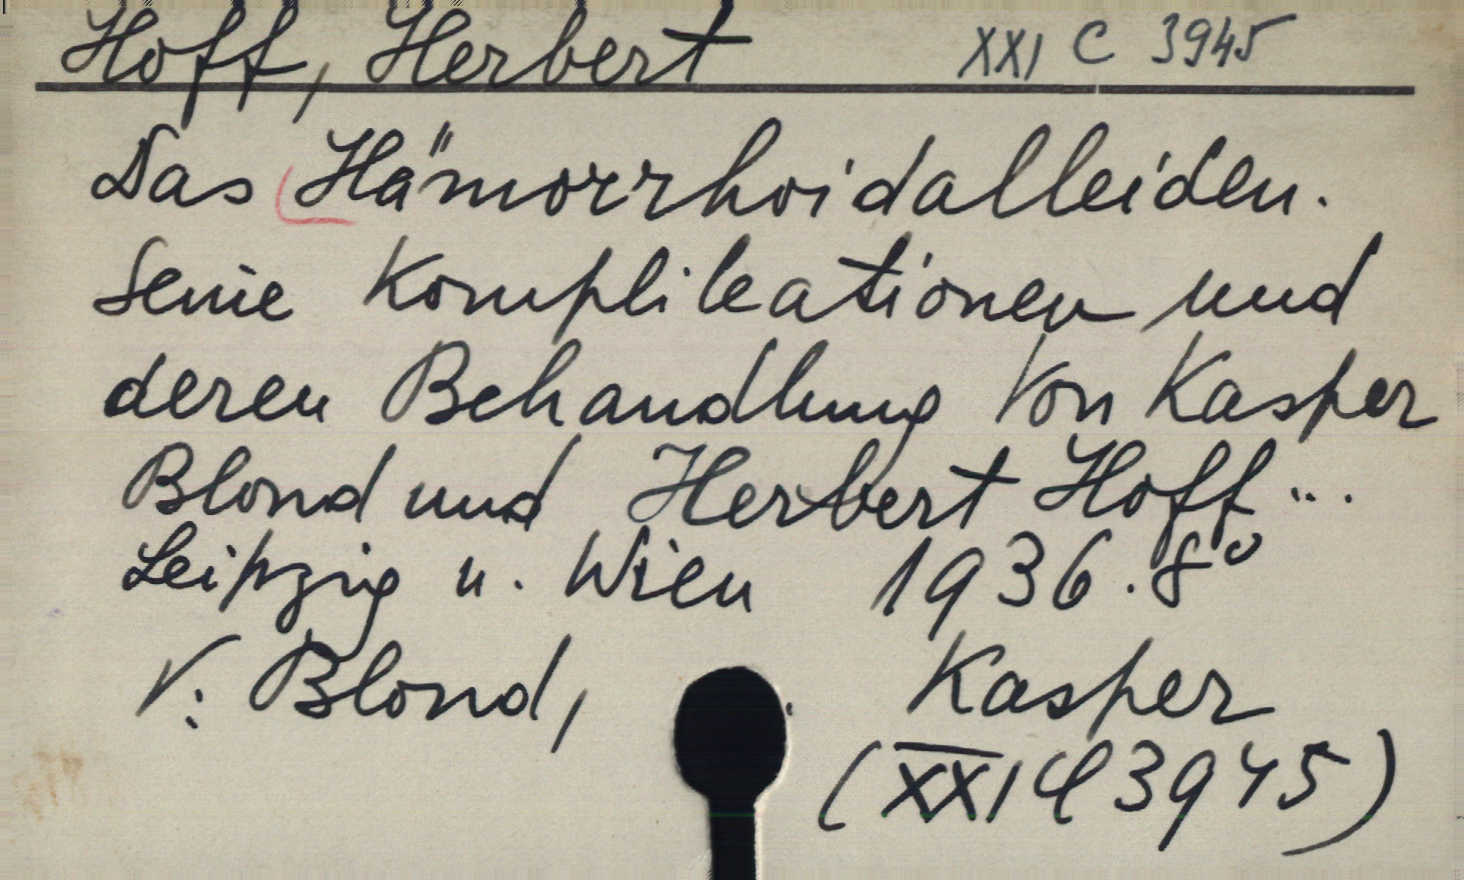 Hoff, Herbert XXI C 3945
Das Hämorrhoidalleiden.
Seine Komplikationen und
deren Behandlung Von Kasper
Blond und Herbert Hoff...
Leipzig u. Wien 1936. 8°
V: Blond, Kasper
(XXI C 3945)